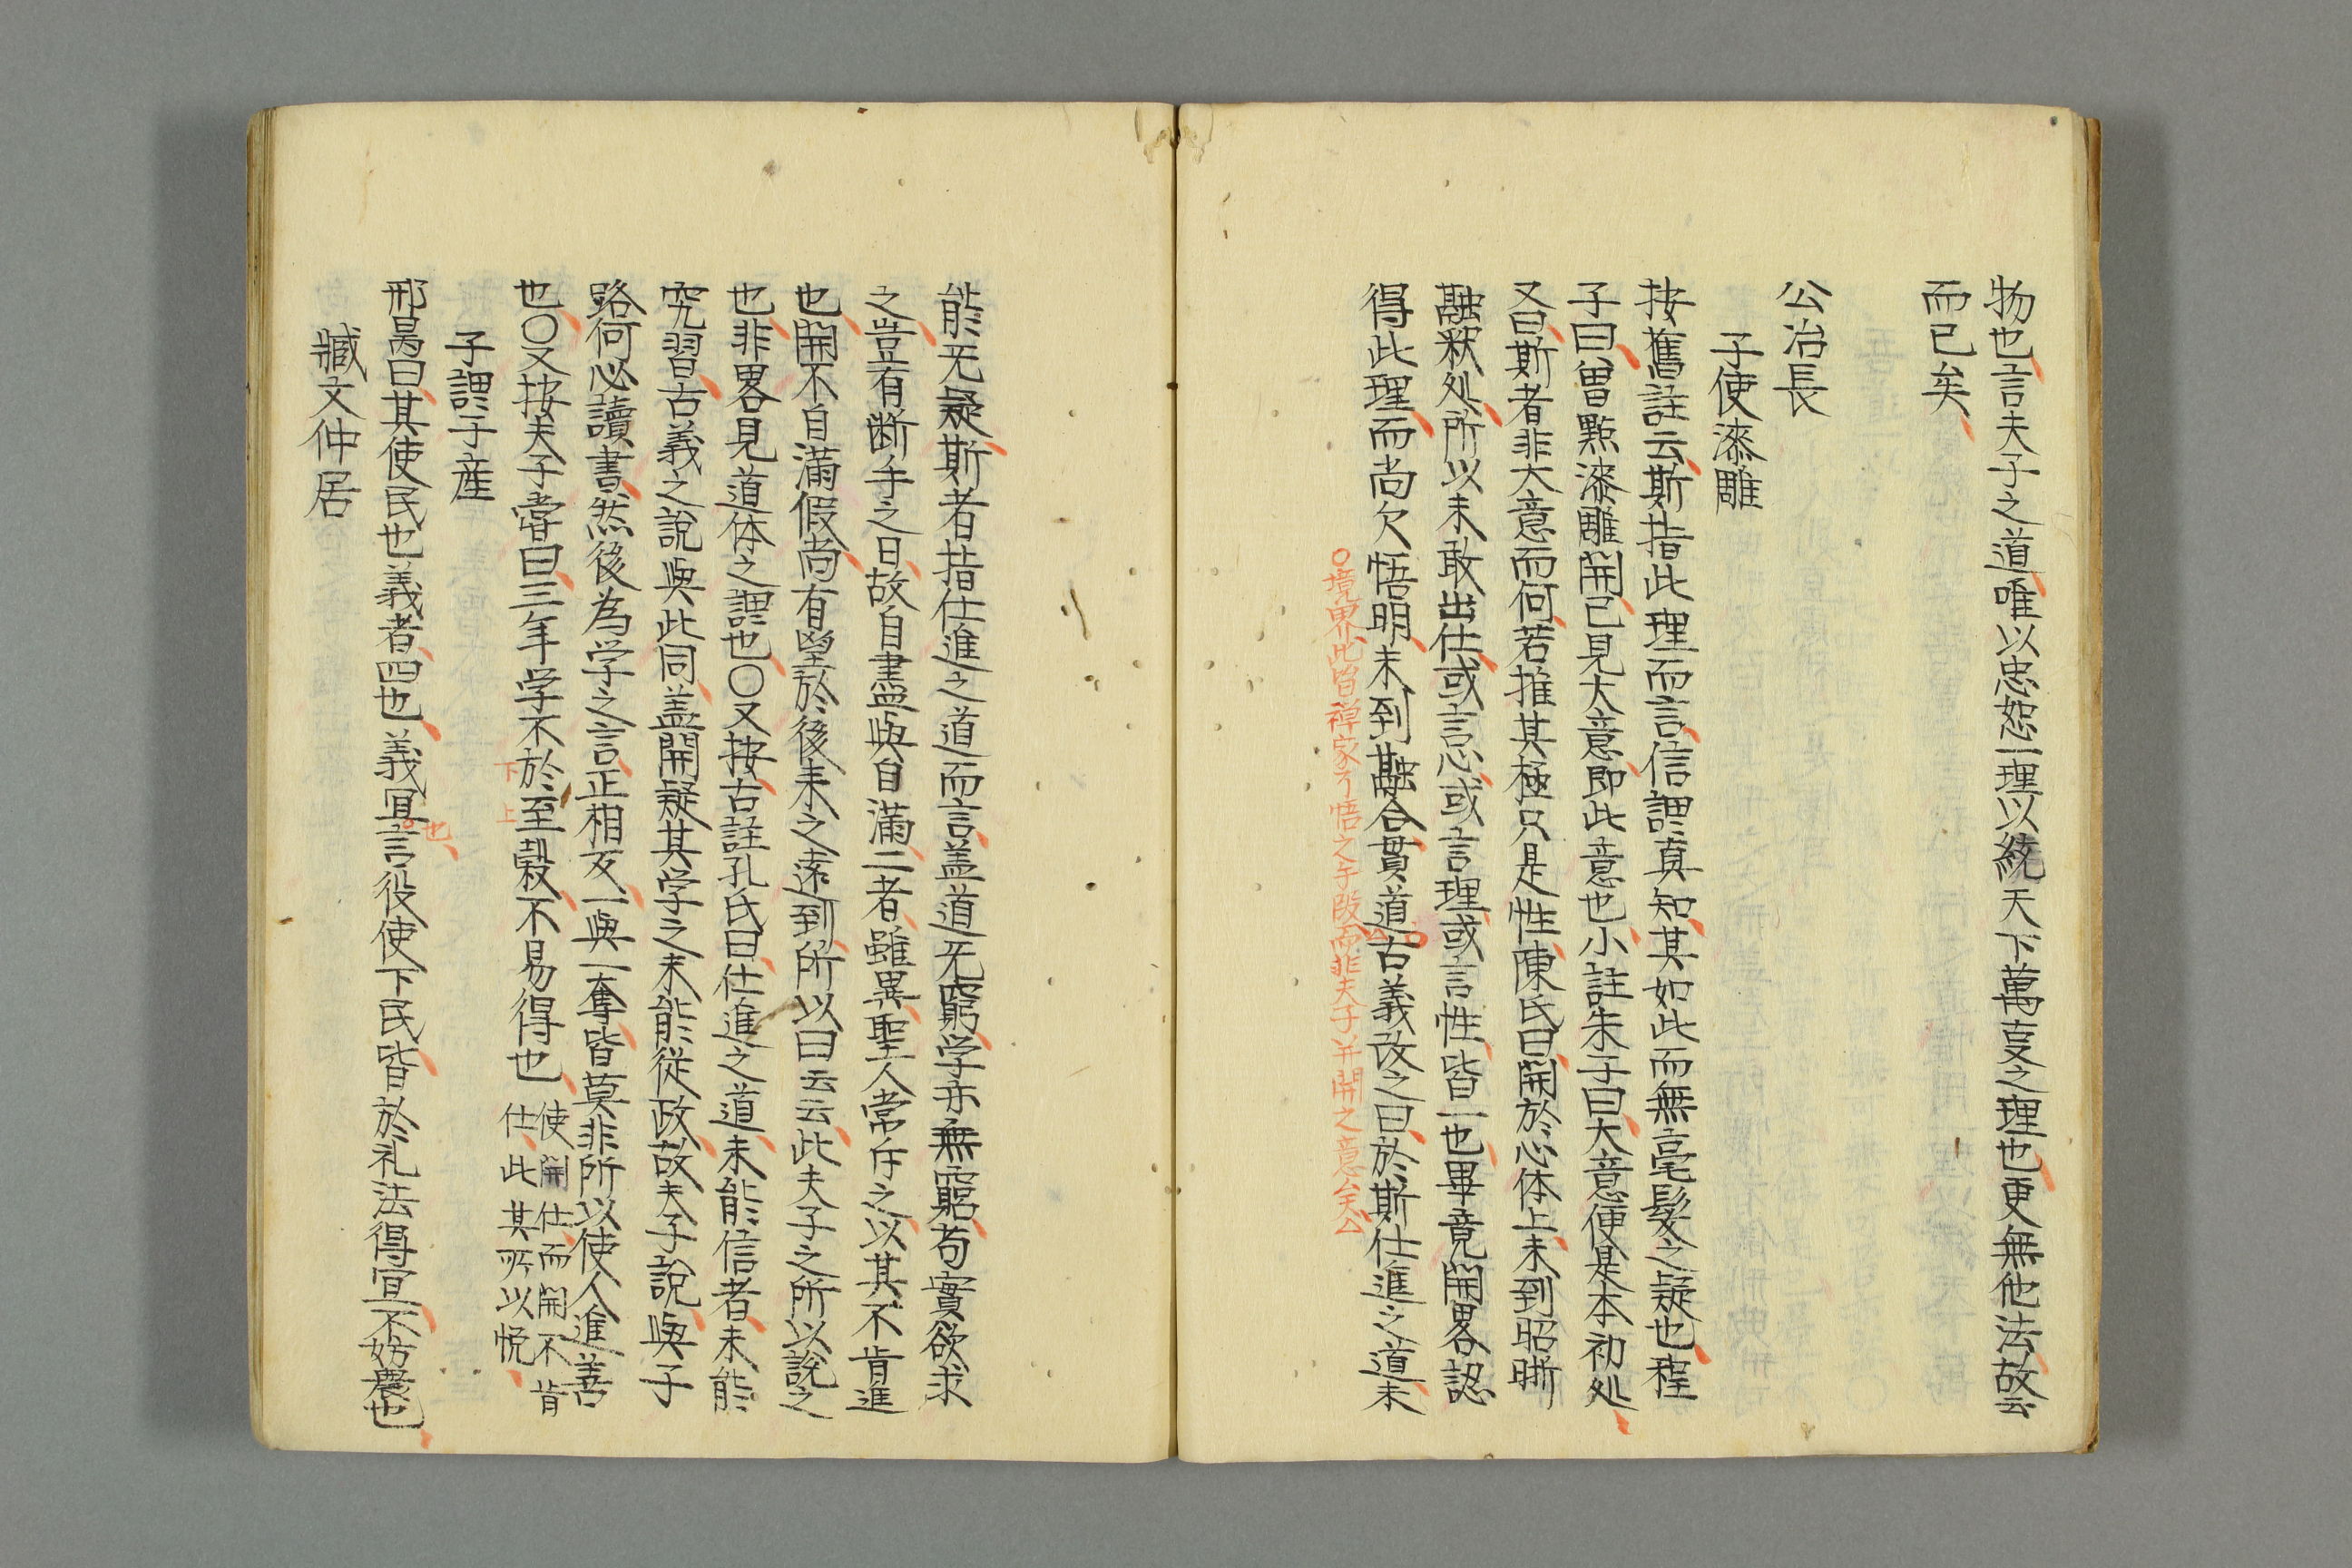 物也言夫子之道唯以忠恕一理以統天下萬変之理也更無他法故云
而已矣
公冶長
子使漆雕
按舊註云斯指此理而言信謂真知其如此而無毫髮之疑也程
子曰曽點漆雕開已見大意即此意也小註朱子曰大意便是本初処
又曰斯者非大意而何若推其極只是性陳氏曰開於心体上未到昭晣
融釈処所以未敢出仕或言心或言理或言性皆一也畢竟開畧認
得此理而尚欠悟明未到融合貫道古義改之曰於斯仕進之道未
○境界此皆禅家了悟之手段而非夫子并開之意矣
能无疑斯者指仕進之道而言盖道无窮学亦無窮苟實欲求
之豈有断手之日故自畫與自滿二者雖異聖人常斥之以其不肯進
也開不自滿假尚有望於後来之遠到所以曰云云此夫子之所以說之
也非畧見道体之謂也○又按古註孔氏曰仕進之道未能信者未能
究習古義之說與此同盖開疑其学之未能從政故夫子說與子
路何必讀書然後為学之言正相反一與一奪皆莫非所以使人進善
也○又按夫子嘗曰三年学不於至穀不易得也
下 上
使開仕而開不肯
仕此其所以悦
子謂子産
邢昺曰其使民也義者四也義宜言役使下民皆於礼法得宜不妨農也
也
臧文仲居